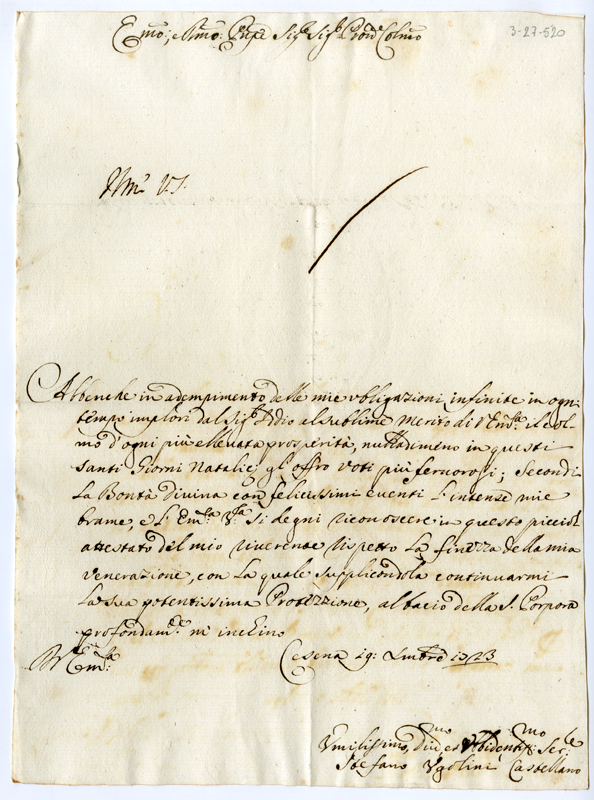 Emo; e Rmo: Prnpe Sigr. Sigr. Prōne Colmo
3-27-520
Abbenche in adempimento delle mie obligazioni infinite in ogni
tempo implori dal Sigr. Iddio al sublime merito di V. Emza. il col-
mo d'ogni più ellevata prosperità, nulladimeno in questi
santi Giorni Natalicj gl'offro voti più fervorosi; Secondi
la Bontà Divina con felicissimi eventi l'intense mie
brame, e l'Emza. Va. si degni riconoscere in questo picciol
attestato del mio riverente rispetto la finezza della mia
venerazione, con la quale supplicandola continuarmi
la sua potentissima Protezzione, al bacio della S. Porpora
profondamte. m'inchino
Cesena 19: Xmbre 1723
Umilissimo, Divmo et Obidentmo: Serre.
Stefano Ugolini Castellano